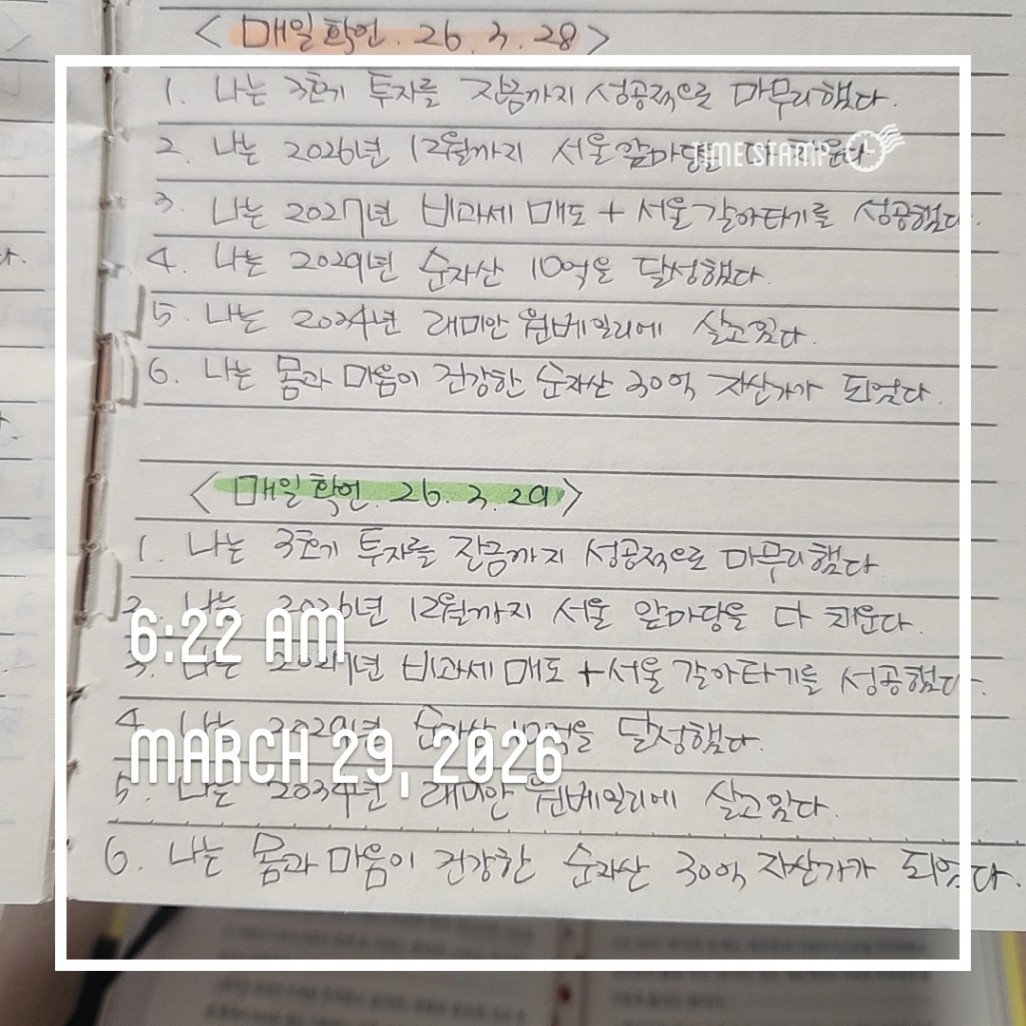 <매일 확언. 26. 3. 28>
1. 나는 3호기 투자를 잔금까지 성공적으로 마무리했다.
2. 나는 2026년 12월까지 서울 앞마당을 다 채운다
TIME STAMP
3. 나는 2027년 비과세 매도 + 서울 갈아타기를 성공했다.
4. 나는 2029년 순자산 10억을 달성했다.
5. 나는 2034년 래미안 원베일리에 살고있다.
6. 나는 몸과 마음이 건강한 순자산 30억 자산가가 되었다.
<매일 확언. 26. 3. 29>
1. 나는 3호기 투자를 잔금까지 성공적으로 마무리했다.
2. 나는 2026년 12월까지 서울 앞마당을 다 채운다.
6:22 AM
3. 나는 2027년 비과세 매도 + 서울 갈아타기를 성공했다.
4. 나는 2029년 순자산 10억을 달성했다.
MARCH 29, 2026
5. 나는 2034년 래미안 원베일리에 살고있다.
6. 나는 몸과 마음이 건강한 순자산 30억 자산가가 되었다.